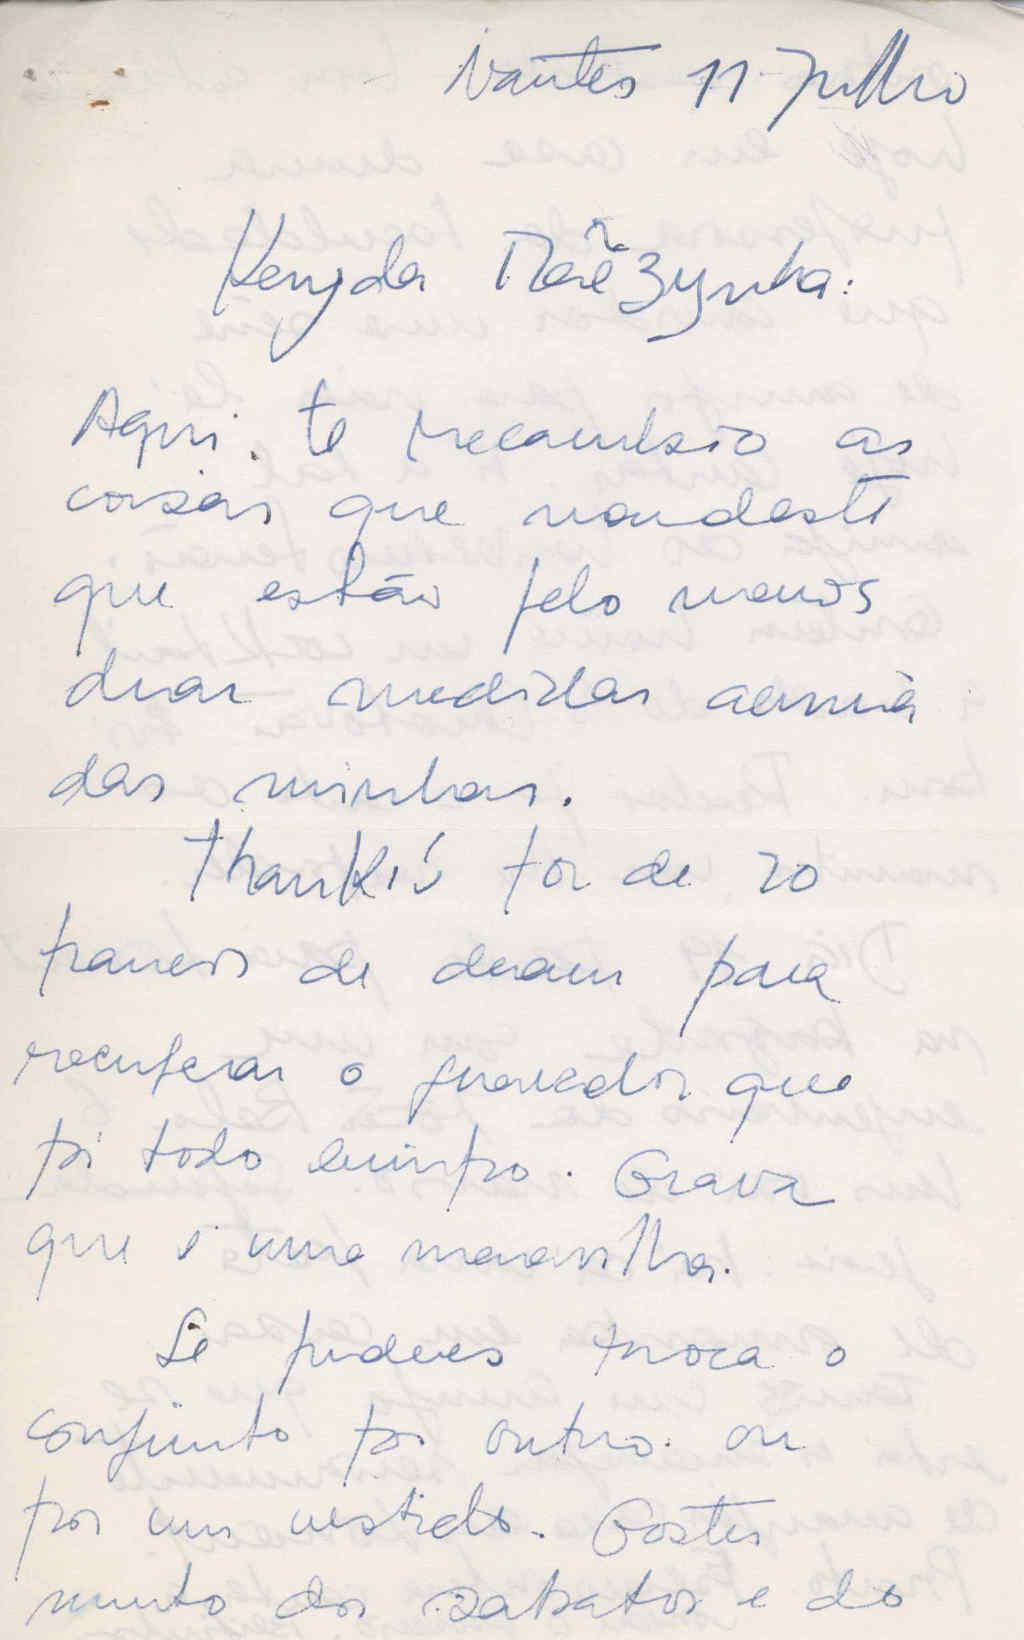 Nantes 11 Julho
Keryda Mãezynha:
Aqui te recambio as
coisas que mandaste
que estão pelo menos
duas medidas acima
das minhas.
Thank's por de 20
francos de deram para
recuperar o gravador que
foi todo limpo. Grava
que é uma maravilha.
Se puderes troca o
conjunto por outro ou
por um vestido. Gostei
muito dos sapatos e do